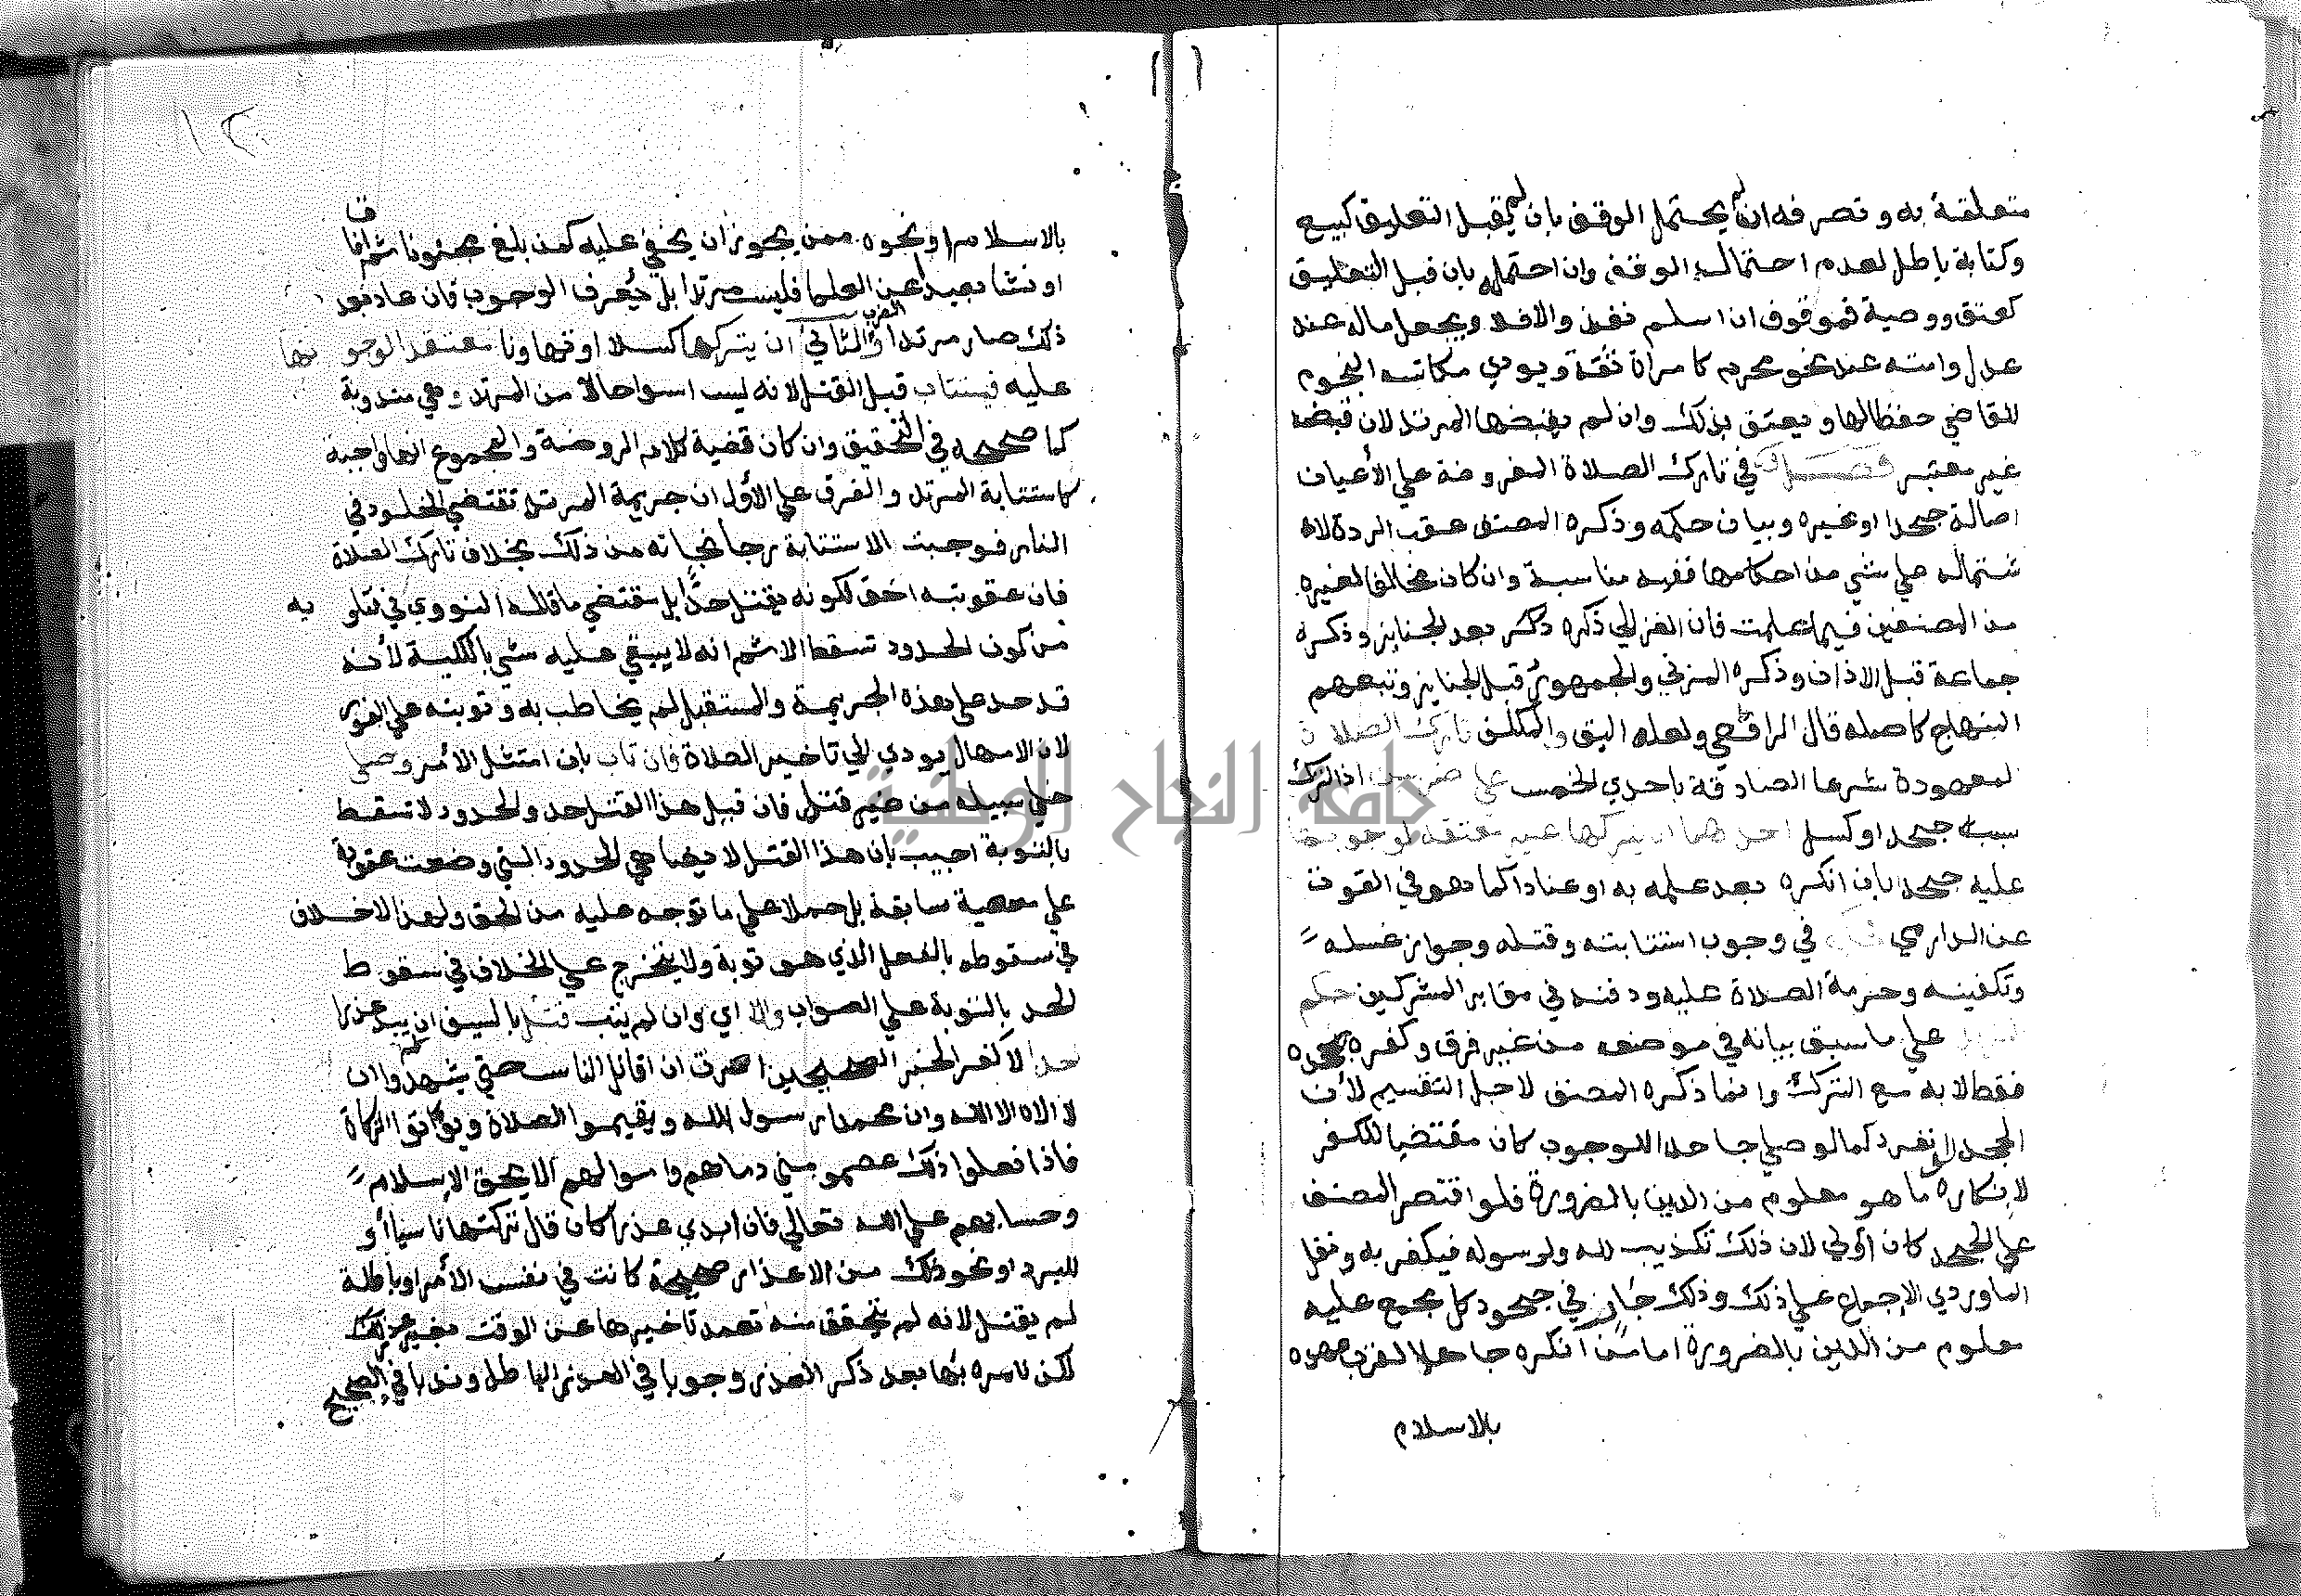 متعلقة به وتصرفه ان لم يحتمل الوقف بان لم يقبل التعليق كبيع
وكتابة باطل لعدم احتماله الوقف وان احتمله بان قبل التعليق
كعتق ووصية فموقوف ان اسلم نفذ والا فلا ويجعل ماله عند
عدل وامته عند نحو محرم كامراة ثقة ويودي مكاتبه النجوم
للقاضي حفظا لها ويعتق بذلك وان لم يقبضها المرتد لان قبضه
غير معتبر فصل في تارك الصلاة المفروضة علي الأعيان
اصالة جحدا او غيره وبيان حكمه وذكره المصنف عقب الردة لا
شتماله علي شي من احكامها ففيه مناسبة وان كان مخالفا لغيره
من المصنفين فيما علمت فان الغزالي ذكره بعد الجنايز وذكره
جماعة قبل الاذان وذكره المزني والجمهور قبل الجنايز وتبعهم
المنهاج كاصله قال الرافعي ولعله اليق والمكلف تارك الصلاة
لمعهودة شرعا الصادقة باحدي الخمس علي ضربين اذ الترك
سببه جحد او كسل احدهما ان يتركها غير معتقد لوجوبها
عليه جحدا بان انكره بعد علمه به او عنادا كما هو في القوت
عن الدارمي في وجوب استتابته وقتله وجواز غسله
وتكفينه وحرمة الصلاة عليه ودفنه في مقابر المشركين حكم
علي ما سبق بيانه في موضعه من غير فرق وكفره بجحده
فقط لا به مع الترك وانما ذكره المصنف لاجل التقسيم لأن
الجحد لو انفرد كما لو صلي جاحدا للوجوب كان مقتضيا للكفر
لانكاره ما هو معلوم من الدين بالضرورة فلو اقتصر المصنف
علي الجحد كان اولي لان ذلك تكذيب لله ولرسوله فيكفر به ونقل
الماوردي الاجماع علي ذلك وذلك جار في جحود كل مجمع عليه
معلوم من الدين بالضرورة اما من انكره جاهلا لقرب عهده
بالاسلام
١٢
بالاسلام او نحوه ممن يجوز ان يخفي عليه كمن بلغ مجنونا ثم افاق
او نشا بعيدا عن العلما فليس مرتدا بل يُعرف الوجوب فان عاد بعد
ذلك صار مرتدا والضرب الثاني ان يتركها كسلا او تهاونا معتقدا لوجوبها
عليه فيستتاب قبل القتل لانه ليس اسوا حالا من المرتد وهي مندوبة
كما صححه في التحقيق وان كان قضية كلام الروضة والمجموع انها واجبة
كاستتابة المرتد والفرق علي الأول ان جريمة المرتد تقتضي الخلود في
النار فوجبت الاستتابة رجا نجاته من ذلك بخلاف تارك الصلاة
فان عقوبته اخف لكونه يقتل حدًا بل مقتضي ما قاله النووي في فتاويه
من كون الحدود تسقط الاثم انه لا يبقي عليه شي بالكلية لأنه
قد حد علي هذه الجريمة والمستقبل لم يخاطب به وتوبته علي الفور
لان الامهال يودي الي تاخير الصلاة فان تاب بان امتثل الأمر وصلي
خلي سبيله من غير قتل فان قيل هذا القتل حد والحدود لا تسقط
بالتوبة اجيب بان هذا القتل لا يضاهي الحدود التي وضعت عقوبة
علي معصية سابقة بل حملا علي ما توجه عليه من الحق ولهذا لا خلاف
في سقوطه بالفعل الذي هو توبة ولا يتخرج علي الخلاف في سقوط
الحد بالتوبة علي الصواب والا اي وان لم يتب قتل بالسيف ان لم يبد عذرا
حدا لا كفرا لخبر الصحيحين امرت ان اقاتل الناس حتي يشهدوا ان
لا اله الا الله وان محمدا رسول الله ويقيموا الصلاة ويوتوا الزكاة
فاذا فعلوا ذلك عصموا مني دماهم واموالهم الا بحق الاسلام
وحسابهم علي الله تعالي فان ابدي عذرا كان قال تركتها ناسيا أو
للبرد او نحو ذلك من الاعذار صحيحة كانت في نفس الأمر او باطلة
لم يقتل لانه لم يتحقق منه تعمد تاخيرها عن الوقت بغير عذر
لكن نامره بها بعد ذكر العذر وجوبا في العذر الباطل وندبا في الصحيح
جامعة النجاح الوطنية